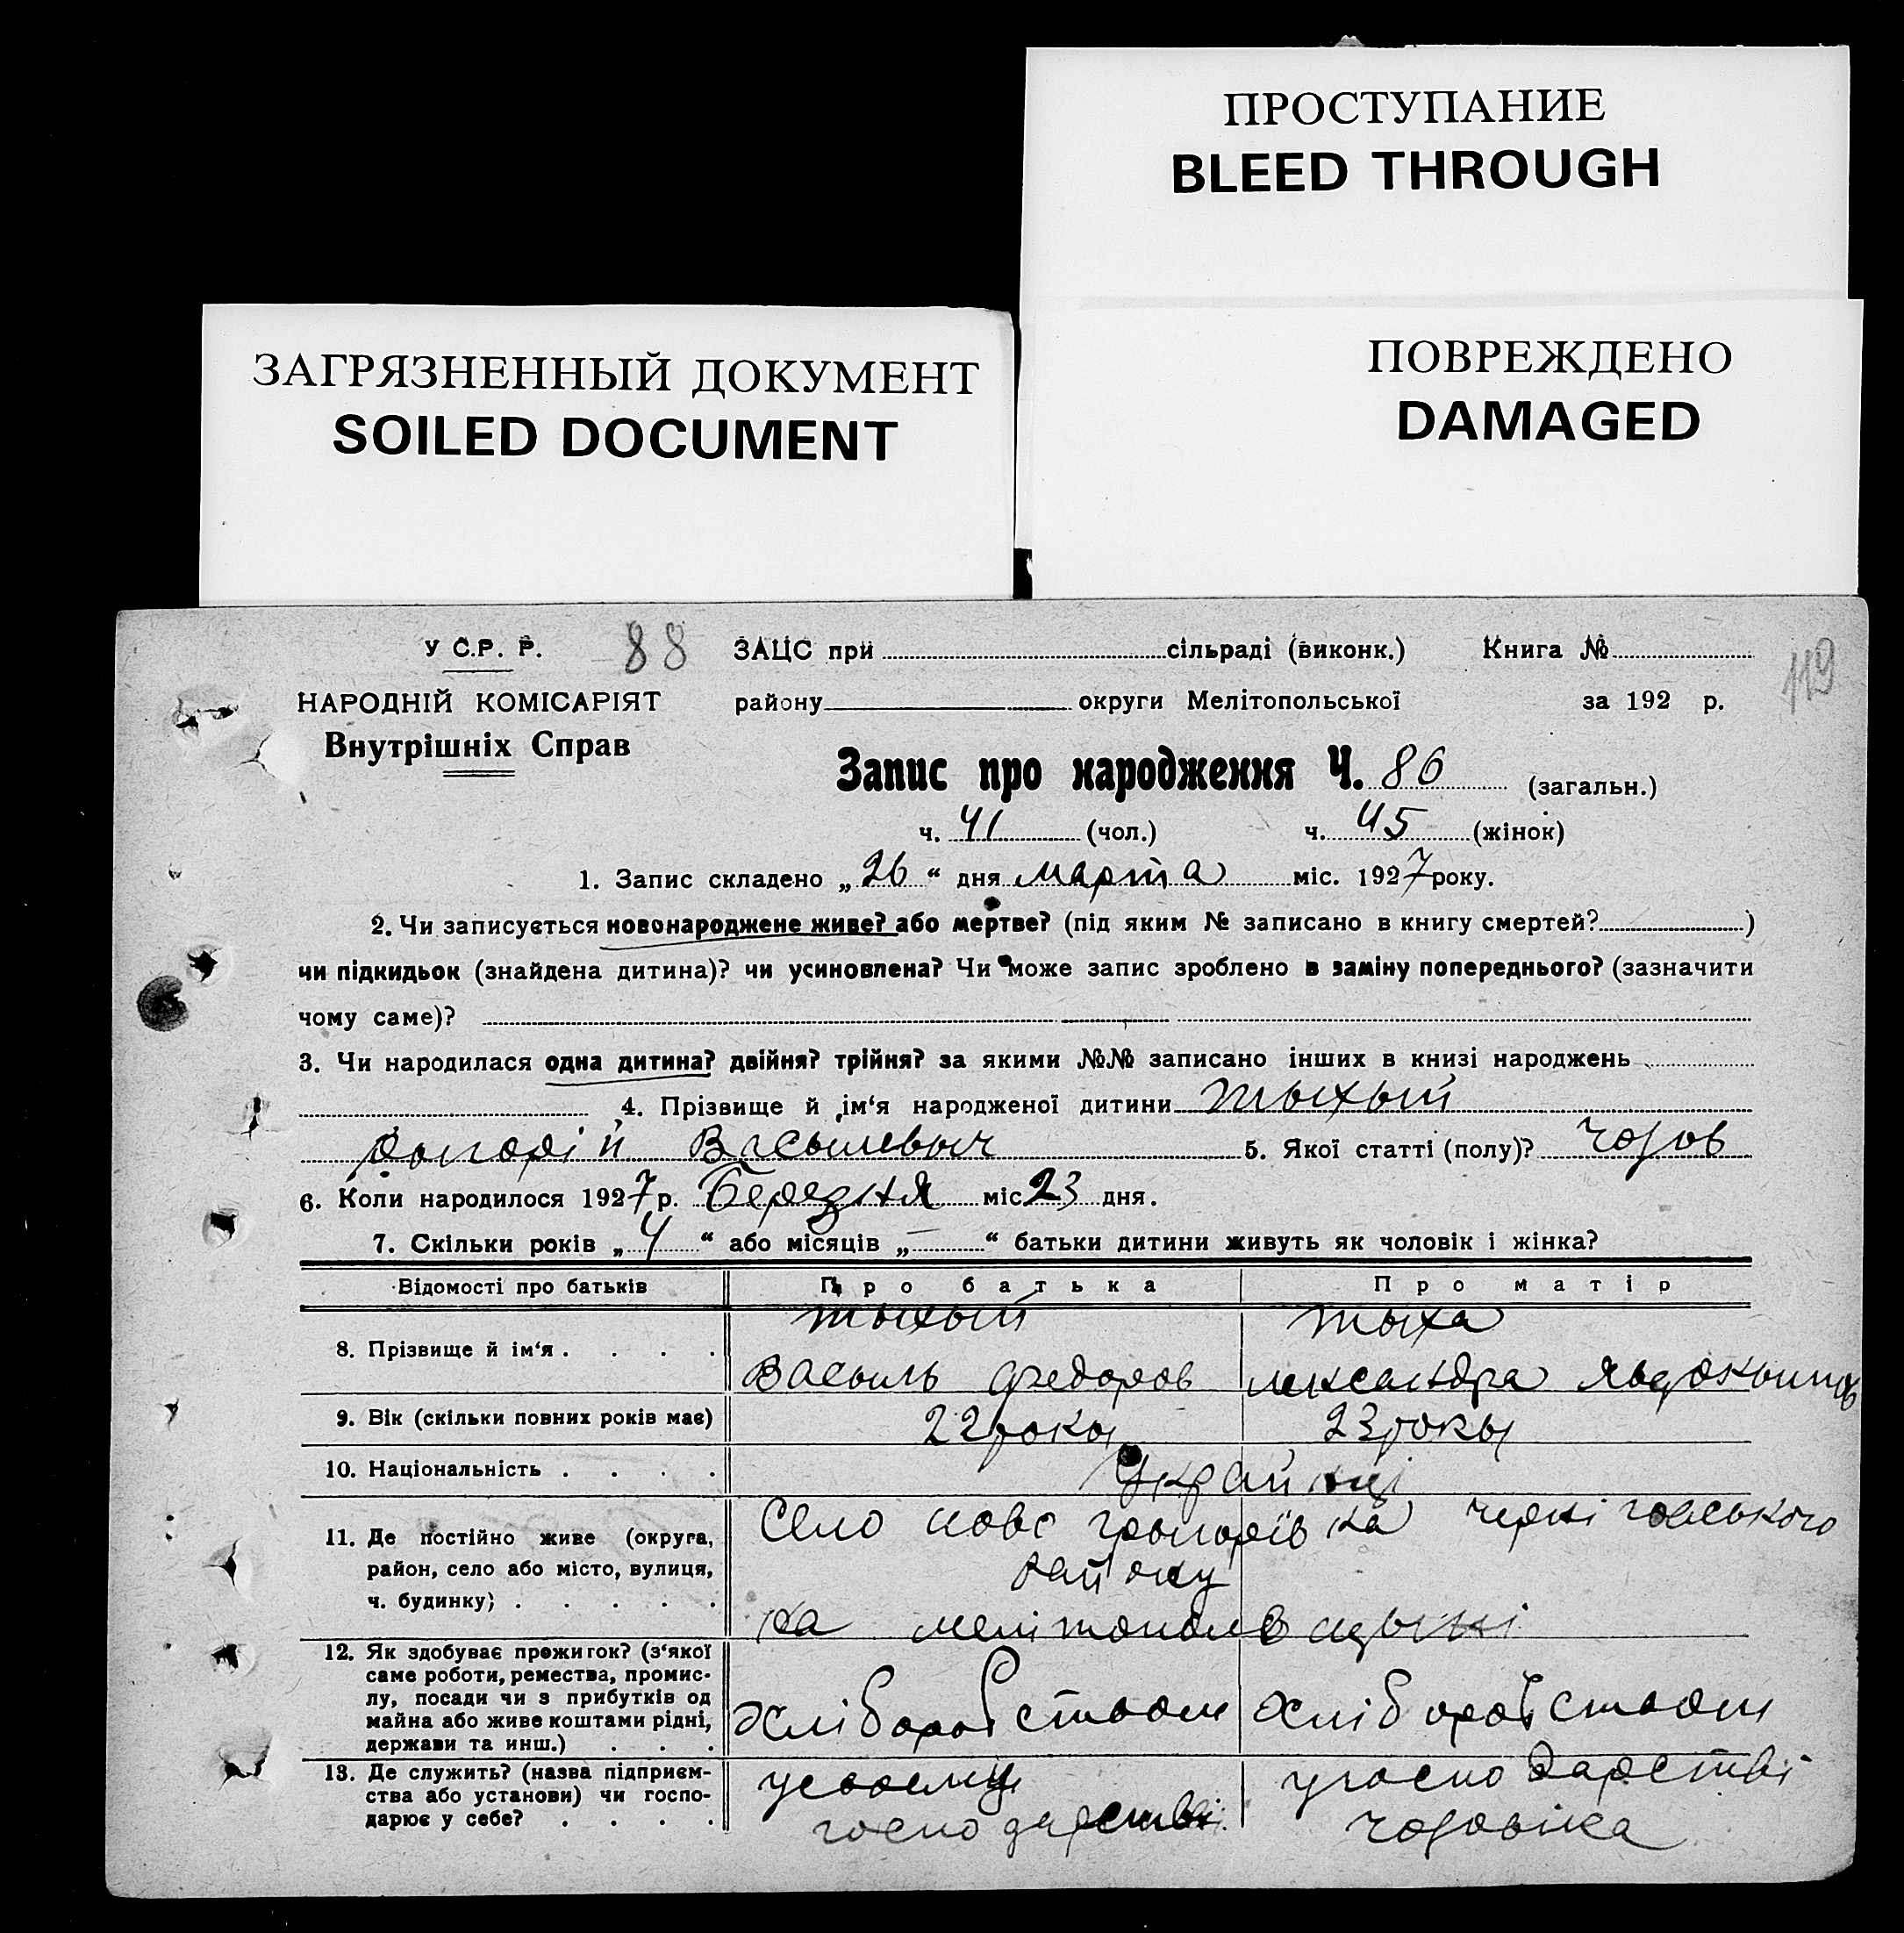 ПРОСТУПАНИЕ
BLEED THROUGH
ЗАГРЯЗНЕННЫЙ ДОКУМЕНТ
SOILED DOCUMENT
ПОВРЕЖДЕНО
DAMAGED
У С.Р. Р. 88 ЗАЦС при сільраді (виконк.) Книга № 119
НАРОДНІЙ КОМІСАРІЯТ району округи Мелітопольської за 192 р.
Внутрішніх Справ
Запис про народження Ч. 86 (загальн.)
ч. 41 (чол.) ч. 45 (жінок)
1. Запис складено „26“ дня марта міс. 1927 року.
2. Чи записується новонароджене живе? або мертве? (під яким № записано в книгу смертей? )
чи підкидьок (знайдена дитина)? чи усиновлена? Чи може запис зроблено в заміну попереднього? (зазначити
чому саме)?
3. Чи народилася одна дитина? двійня? трійня? за якими №№ записано інших в книзі народжень
4. Прізвище й ім‘я народженої дитини Тыхый
Васылевыч 5. Якої статті (полу)? чолов
6. Коли народилося 1927 р. Березня міс 23 дня.
7. Скільки років „4“ або місяців „—“ батьки дитини живуть як чоловік і жінка?
Відомості про батьків Про батька Про матір
Тыхый Тыха
8. Прізвище й ім‘я . . . .
Васыль Федоров лександра Явдокымов
9. Вік (скільки повних років має) 22 рокы 23 рокы
10. Національність . . . . Украйнці
11. Де постійно живе (округа, район, село або місто, вулиця, ч. будинку) . . . . .
Село ново григорівка черніговського
району
на мелітопольщыні
12. Як здобуває прожиток? (з‘якої саме роботи, ремества, промислу, посади чи з прибутків од майна або живе коштами рідні, держави та инш.) . . .
хліборобством хліборобством
13. Де служить? (назва підприємства або установи) чи господарює у себе? . . . .
усвоему угосподарстві
господарстві чоловіка